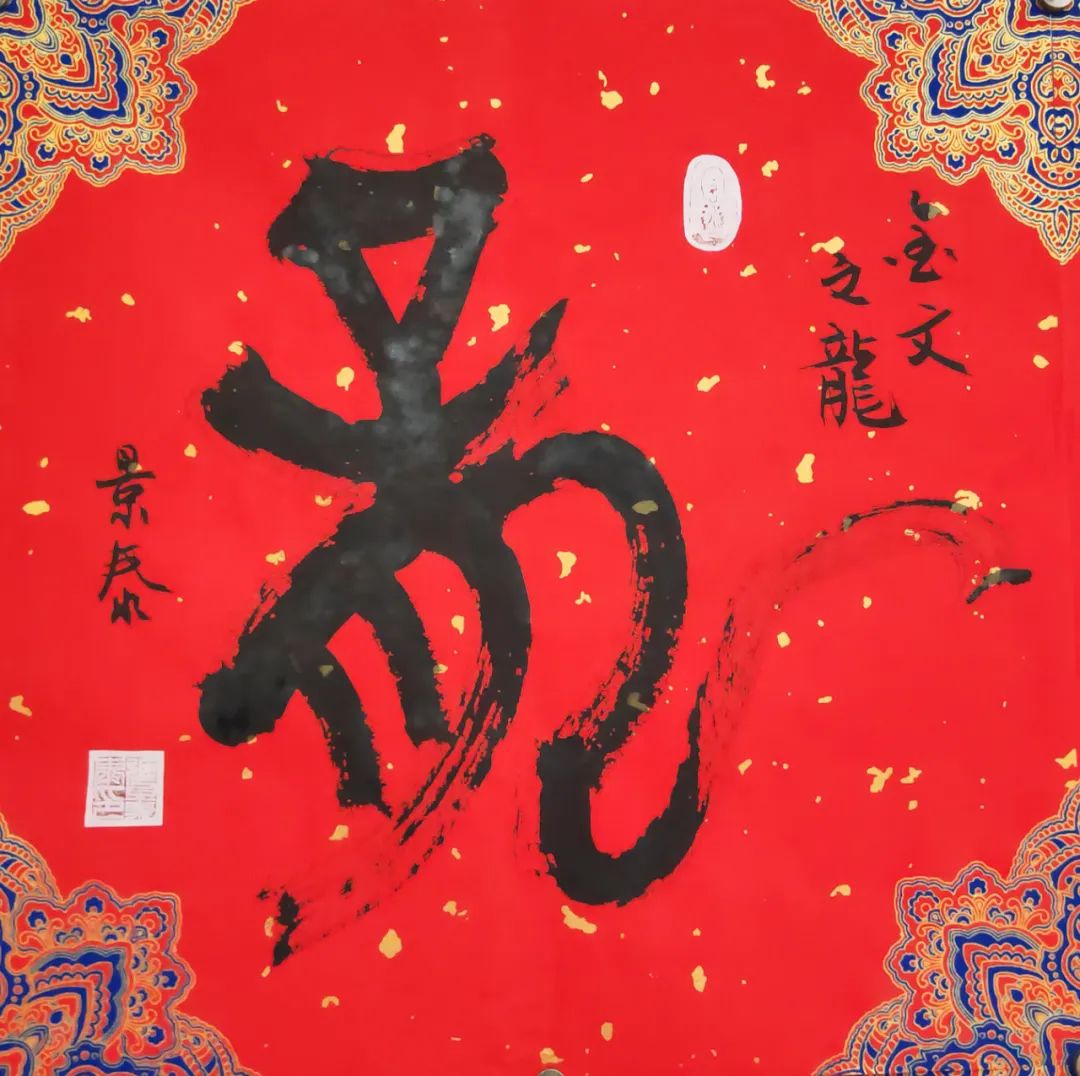 金文
之龍
龍
景泰